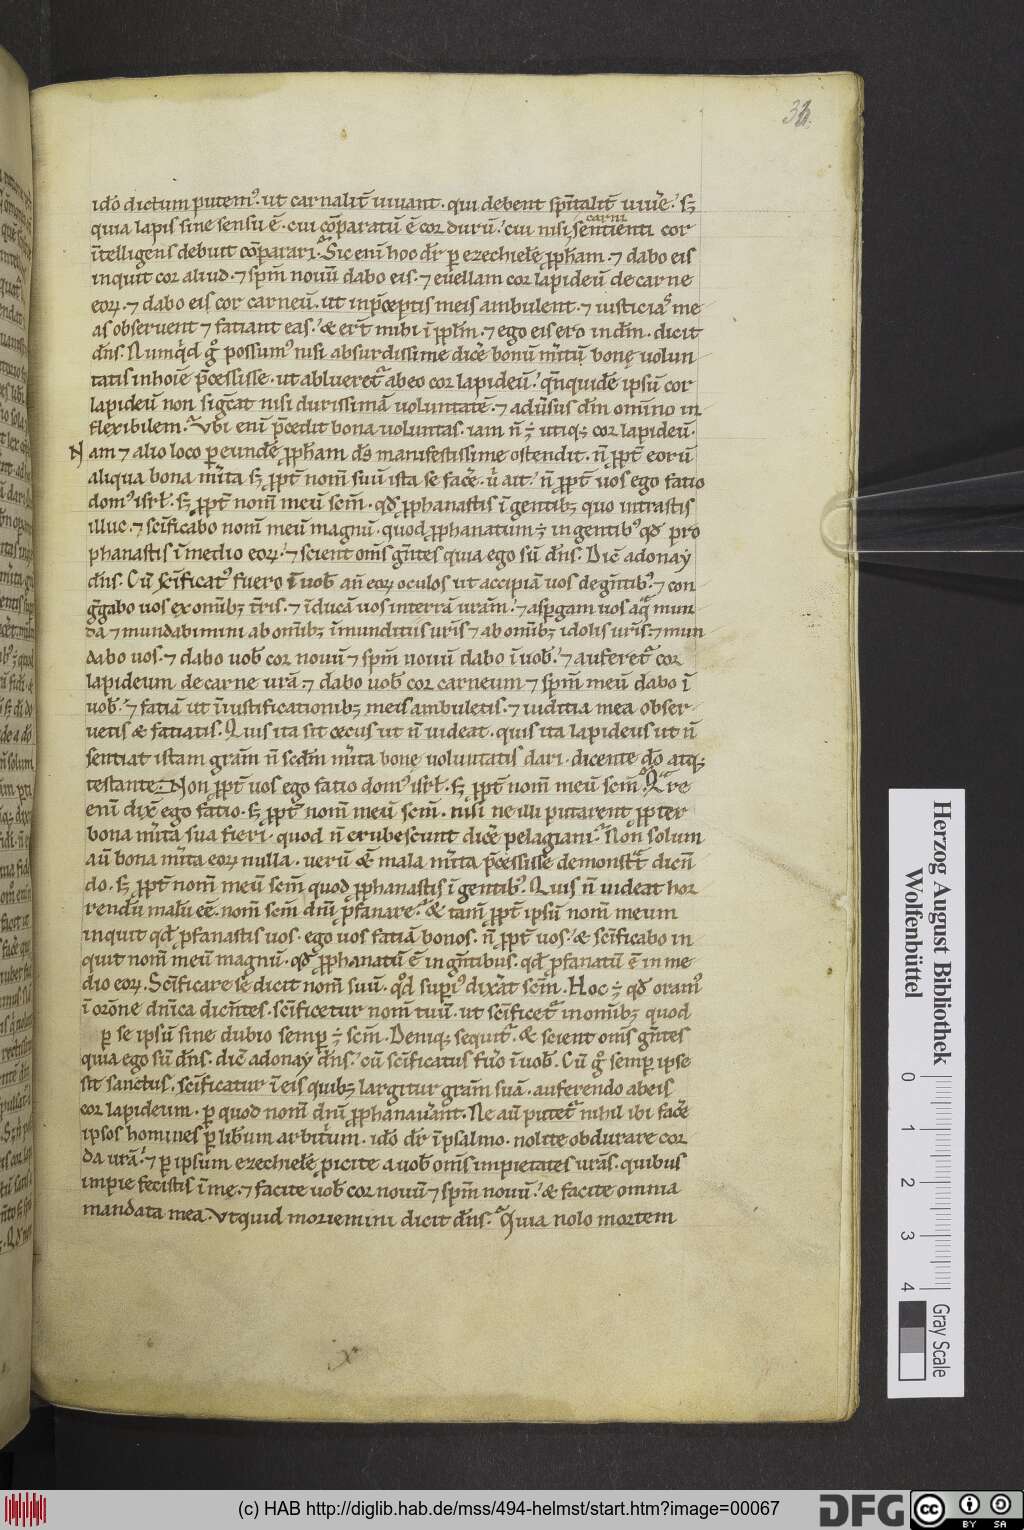 32
idō dictum putemꝰ. ut carnalit̄ uiuant. qui debent sp̄italit̄ uiuere. sꝫ
quia lapis sine sensu ē. cui cōparatū ē cor durū. cui nisi carni sentienti cor
īntelligens debuit cōparari. Sic enī hoc dr̄ ꝑ ezechielē ꝓph̄am. ⁊ dabo eis
inquit cor aliud. ⁊ spm̄ nouū dabo eis. ⁊ euellam cor lapideū de carne
eoꝝ. ⁊ dabo eis cor carneū. ut in p̄ceptis meis ambulent. ⁊ iusticias me
as obseruent ⁊ fatiant eas. & er̄t mihi ī ppl̄m. ⁊ ego eis ero in dm̄. dicit
dn̄s. Numqͥd gͦ possumꝰ nisi absurdissime dicē bonū mītū bonę uolun
tatis in hoīe p̄cessisse. ut ablueret᷑ ab eo cor lapideū. qn̄quidē ipsū cor
lapideū non sigc̄at nisi durissimā uoluntatē. ⁊ aduīsus dm̄ omīno in
flexibilem. Vbi enī p̄cedit bona uoluntas. iam n̄ ÷ utiqꝫ cor lapideū.
Nam ⁊ alio loco ꝑ eundē ꝓph̄am ds̄ manifestissime ostendit. n̄ ꝓpt̄ eorū
aliqua bona mīta sꝫ ꝓpt̄ nom̄ suū ista se facē. ut̄ ait. n̄ ꝓpt̄ uos ego fatio
domꝰ isrł. sꝫ ꝓpt̄ nom̄ meū scm̄. qd̄ ꝓphanastis ī gentibꝫ quo intrastis
illuc. ⁊ sc̄ificabo nom̄ meū magnū. quod ꝓphanatum ÷ in gentibꝰ qd̄ pro
phanastis ī medio eoꝝ. ⁊ scient om̄s gn̄tes quia ego sū dn̄s. Dic̄ adonay
dn̄s. Cū sc̄ificatꝰ fuero ī uob̄ an̄ eoꝝ oculos ut accipiā uos de gn̄tibꝰ. ⁊ con
gḡabo uos ex omībꝫ t̄ris. ⁊ īducā uos in terrā urām. ⁊ aspgam uos aqͣ mun
da ⁊ mundabimini ab omībꝫ īmunditiis urīs ⁊ ab omībꝫ idolis urīs. ⁊ mun
dabo uos. ⁊ dabo uob̄ cor nouū ⁊ spm̄ nouū dabo ī uob̄. ⁊ auferet᷑ cor
lapideum de carne urā. ⁊ dabo uob̄ cor carneum ⁊ spm̄ meū dabo ī
uob̄. ⁊ fatiā ut ī iustificationibꝫ meis ambuletis. ⁊ iuditia mea obser
uetis & fatiatis. Quis ita sit cecus ut n̄ uideat. quis ita lapideus ut n̄
sentiat istam grām n̄ scdm̄ mīta bone uoluntatis dari. dicente dō atqꝫ
testante. Non ꝓpt̄ uos ego fatio domꝰ isrł. sꝫ ꝓpt̄ nom̄ meū scm̄. Qͣre
enī dix̄ ego fatio. sꝫ ꝓpt̄ nom̄ meū scm̄. nisi ne illi putarent ꝓpter
bona mīta sua fieri. quod n̄ erubescunt dicē pelagiani. Non solum
aū bona mīta eoꝝ nulla. uerū & mala mīta p̄cessisse demonst᷑t dicn̄
do. sꝫ ꝓpt̄ nom̄ meū scm̄ quod ꝓphanastis ī gentibꝰ. Quis n̄ uideat hor
rendū malū eē. nom̄ scm̄ dn̄i ꝓfanare. & tam̄ ꝓpt̄ ipsū nom̄ meum
inquit qd̄ ꝓfanastis uos. ego uos fatiā bonos. n̄ ꝓpt̄ uos. & sc̄ificabo in
quit nom̄ meū magnū. qd̄ ꝓphanatū ē in gn̄tibus. qd̄ ꝓfanatū ē in me
dio eoꝝ. Sc̄ificare se dicit nom̄ suū. qd̄ supiꝰ dix̄at scm̄. Hoc ÷ qd̄ oramꝰ
ī orōne dn̄ica dicn̄tes. sc̄ificetur nom̄ tuū. ut sc̄ificet᷑ in omībꝫ quod
ꝑ se ipsū sine dubio sempꝑ ÷ scm̄. Deniqꝫ sequit᷑. & scient om̄s gn̄tes
quia ego sū dn̄s. dic̄ adonay dn̄s. cū sc̄ificatus fuīo ī uob̄. Cū gͦ semꝑ ipse
sit sanctus. sc̄ificatur ī eis quibꝫ largitur grām suā. auferendo ab eis
cor lapideum. ꝑ quod nom̄ dn̄i ꝓphanauīant. Ne aū putet᷑ nihil ibi facē
ipsos homines ꝑ libīum arbitͥum. idō dr̄ ī psalmo. nolite obdurare cor
da urā. ⁊ ꝑ ipsum ezechielē ꝓicite a uob̄ om̄s impietates urās. quibus
impie fecistis ī me. ⁊ facite uob̄ cor nouū ⁊ spm̄ nouū. & facite omnia
mandata mea. Vt quid moriemini dicit dn̄s. Quia nolo mortem
Herzog August Bibliothek
Wolfenbüttel
0 1 2 3 4
Gray Scale
(c) HAB http://diglib.hab.de/mss/494-helmst/start.htm?image=00067
DFG
cc BY SA